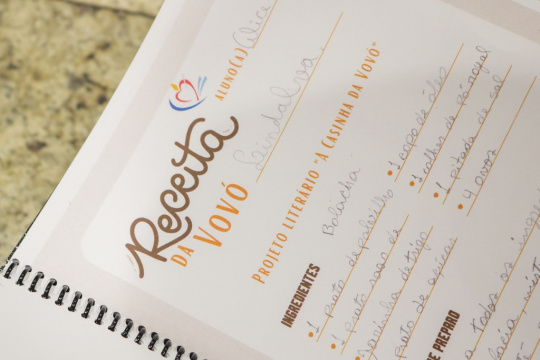 Receita
DA VOVÓ
ALUNO(A) Alice
Lindalva
PROJETO LITERÁRIO "A CASINHA DA VOVÓ"
Balachá
INGREDIENTES
• 1 prato de polvilho
• 1 prato raso de
farinha de trigo
prato de açúcar
• 1 copo de óleo
• 1 colher de pó royal
• 1 pitada de sal
• 4 ovos
DE PREPARO
todos os